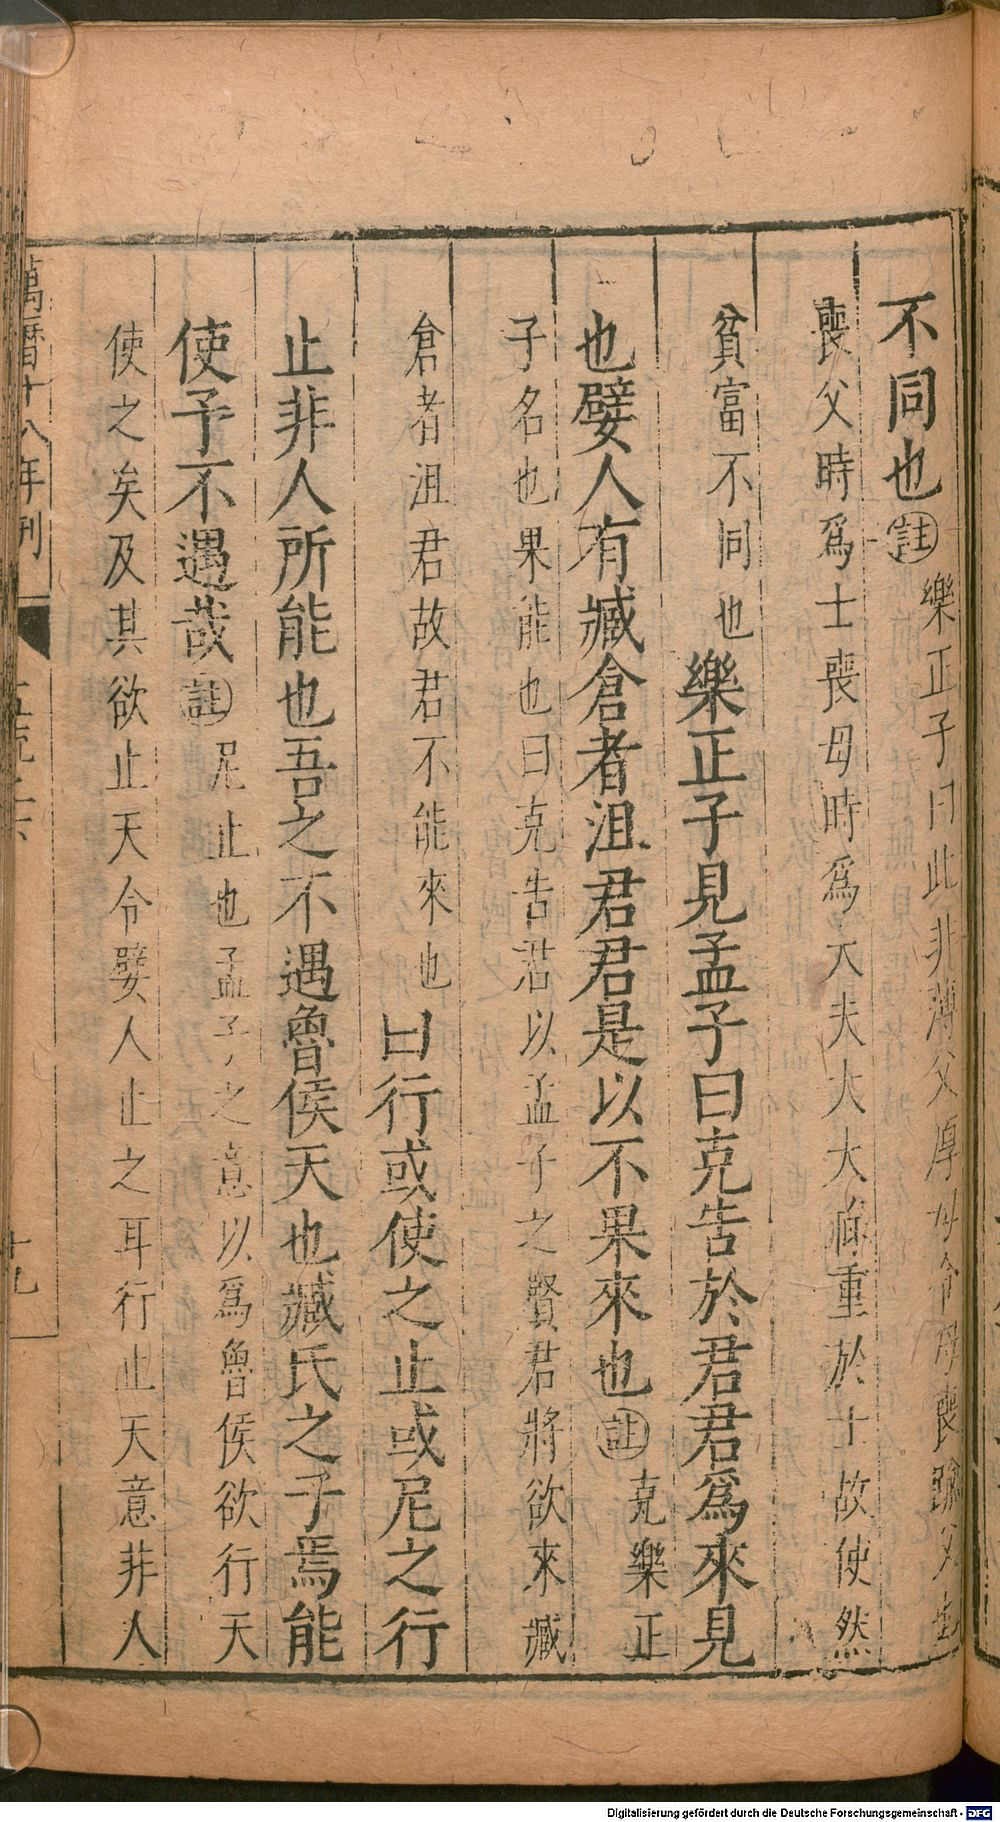 不同也註樂正子曰此非薄父厚母令母喪踰父也
喪父時爲士喪母時爲大夫大夫祿重於士故使然
貧富不同也樂正子見孟子曰克告於君君爲來見
也嬖人有臧倉者沮君君是以不果來也註克樂正
子名也果能也曰克告君以孟子之賢君將欲來臧
倉者沮君故君不能來也曰行或使之止或尼之行
止非人所能也吾之不遇魯侯天也臧氏之子焉能
使予不遇哉註尼止也孟子之意以爲魯侯欲行天
使之矣及其欲止天令嬖人止之耳行止天意非人
萬曆十八年刊
十九
Digitalisierung gefördert durch die Deutsche Forschungsgemeinschaft - DFG